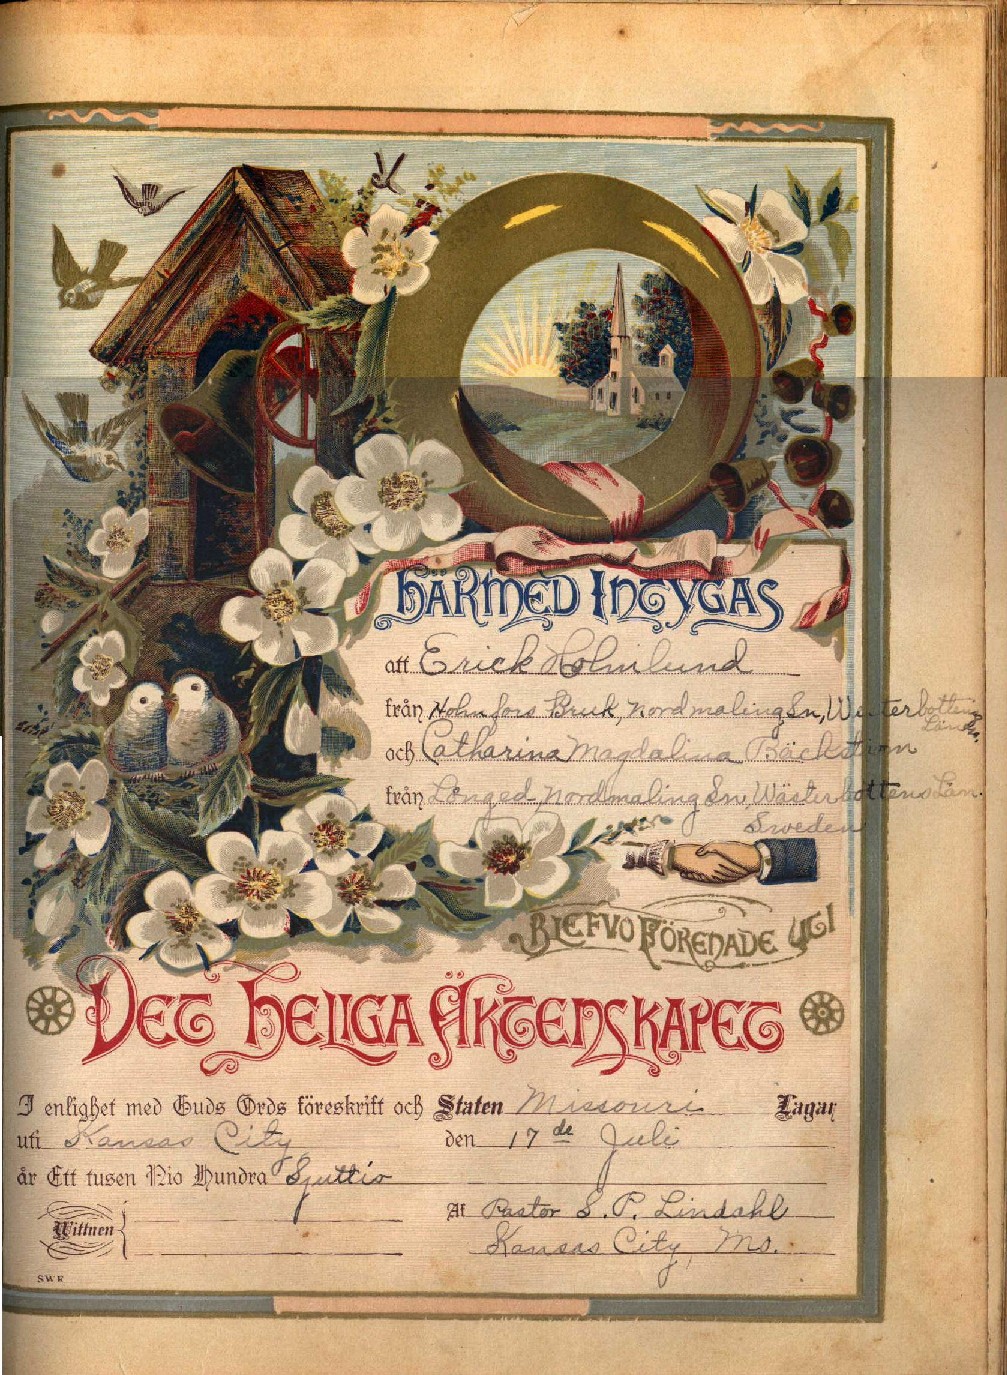 Härmed Intygas
att Erick Holmlund
från Holmfors Bruk, Nordmaling Sn, Westerbottens
Län.
och Catharina Magdalina Bäckström
från Långed - Nordmaling Sn, Wästerbottens Län.
Sweden
Blefvo Förenade Uti
Det Heliga Äktenskapet
I enlighet med Guds Ords föreskrift och Staten Missouri Lagar
uti Kansas City den 17 de Juli
år Ett tusen Nio Hundra Sjuttio
Wittnen Af Pastor S. P. Lindahl
Kansas City, Mo.